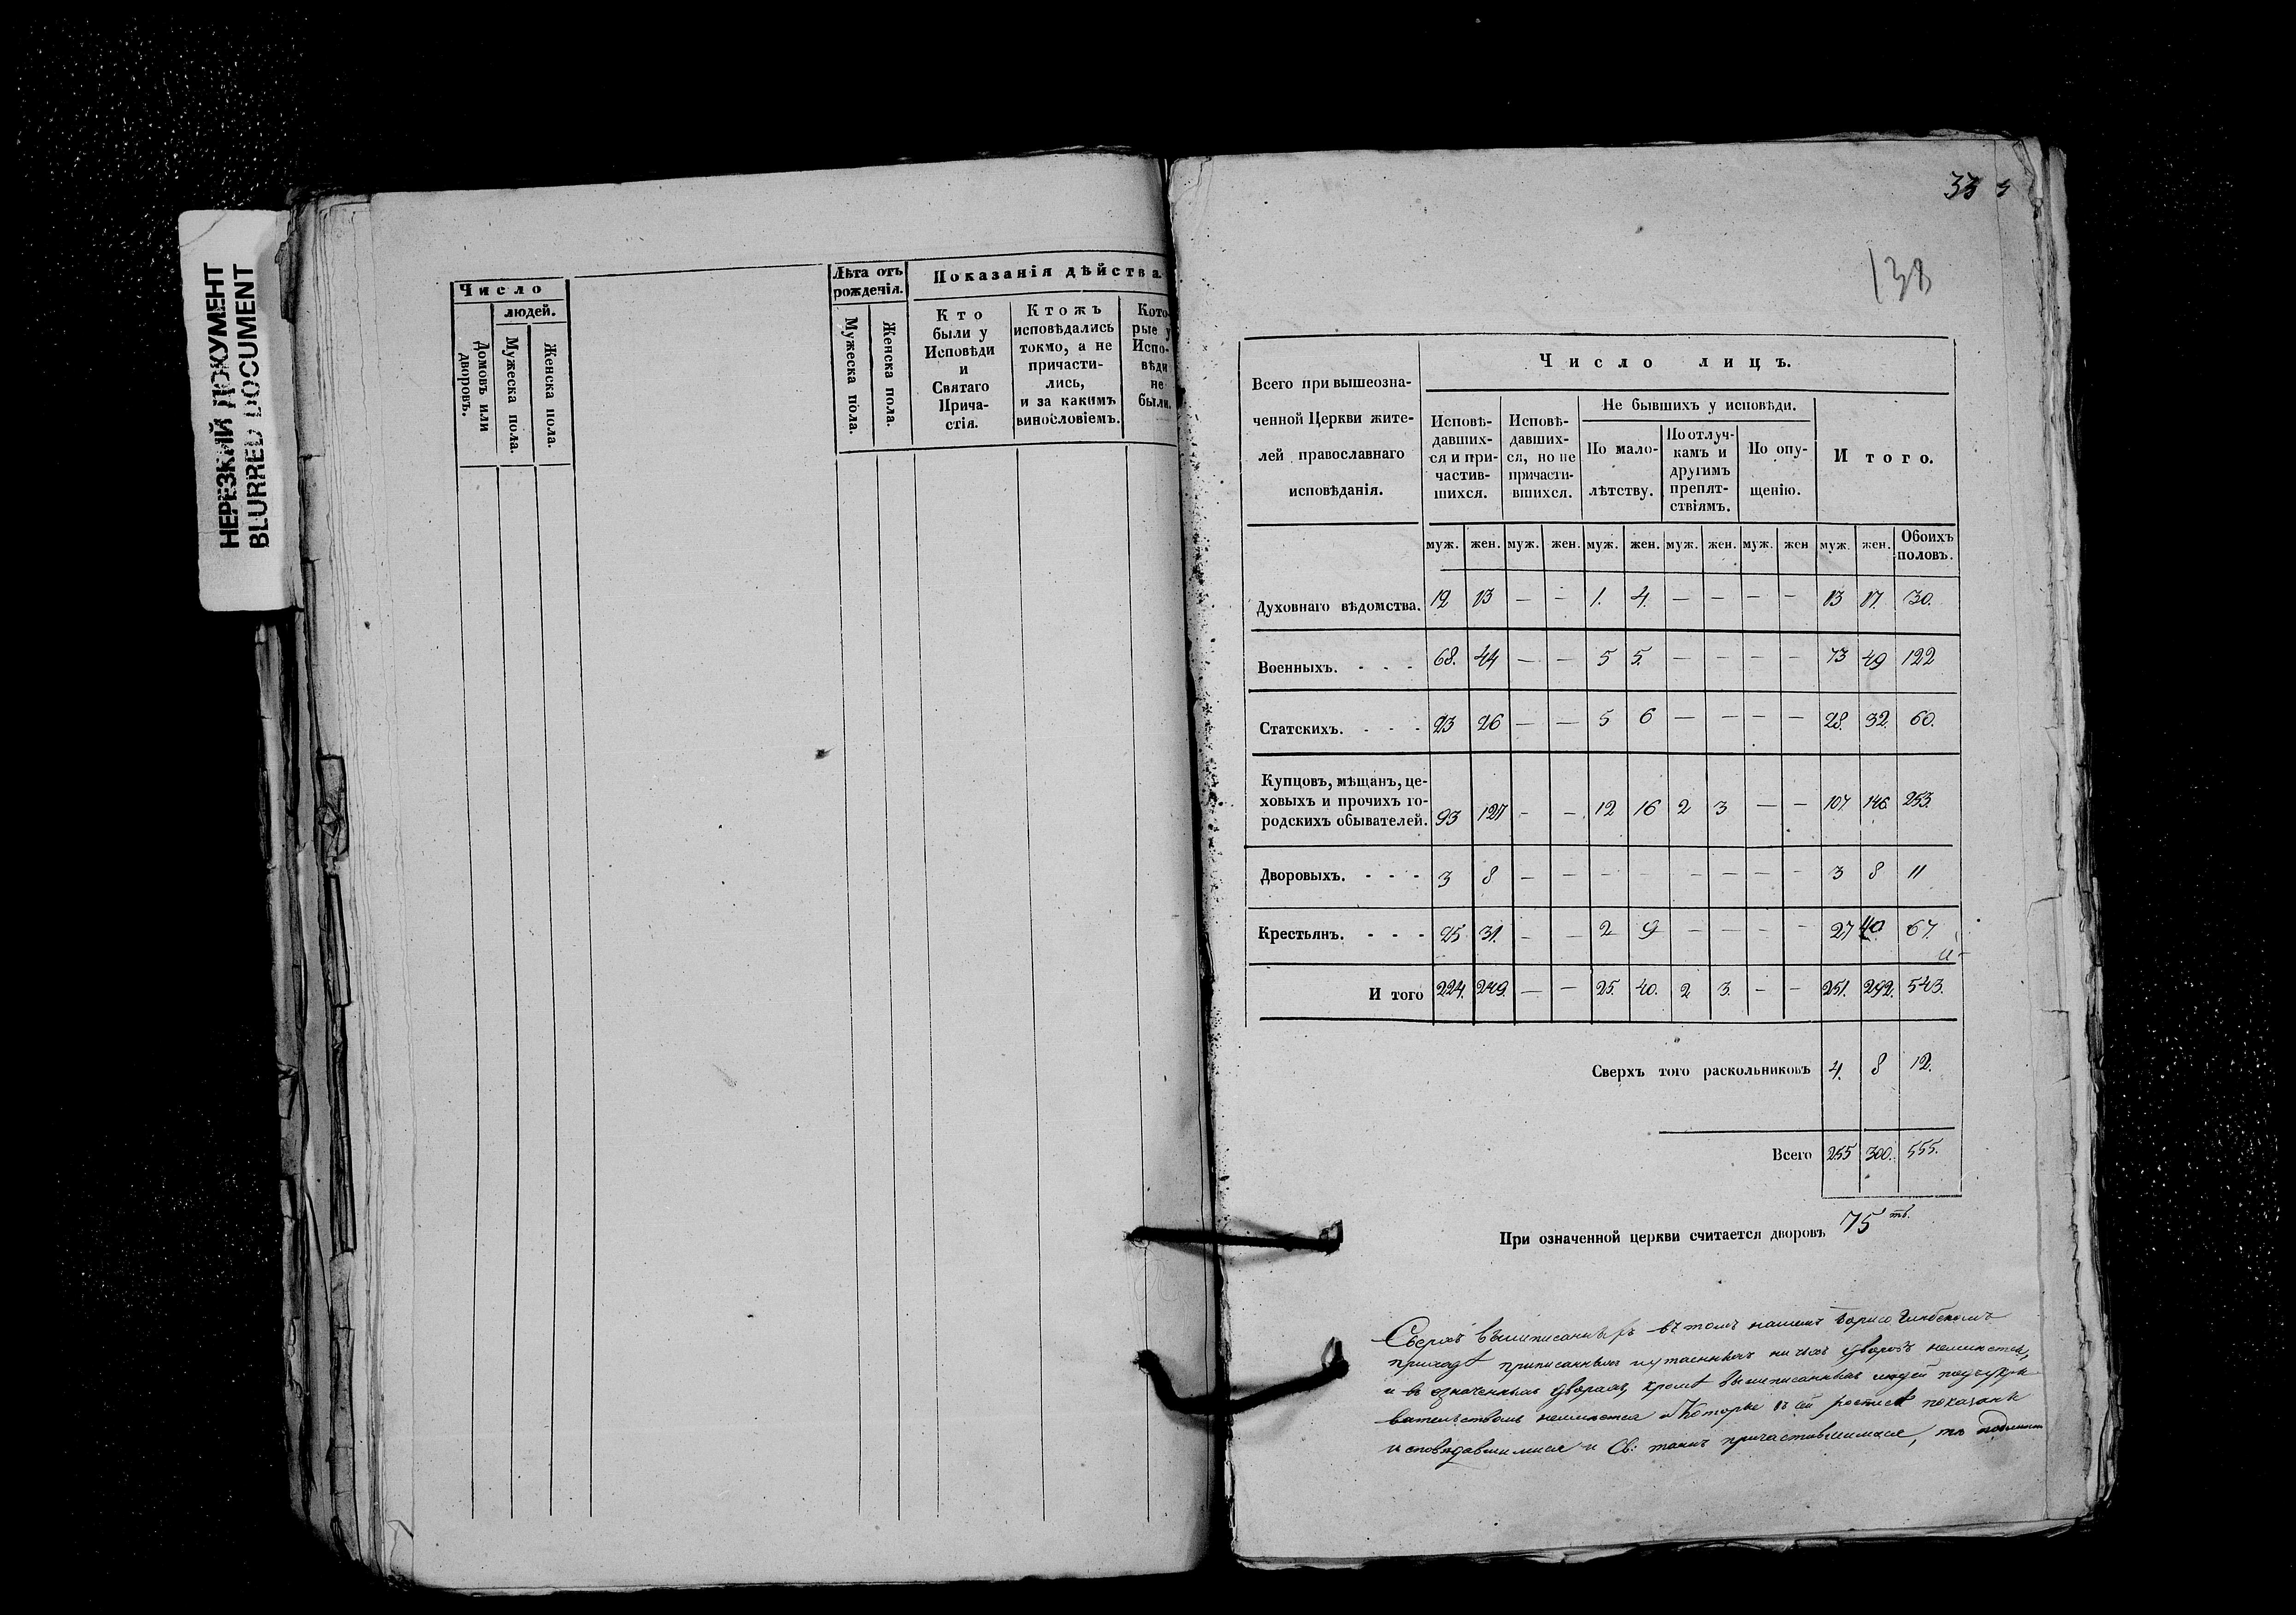 НЕРЕЗКИЙ ДОКУМЕНТ
BLURRED DOCUMENT
Число
людей.
Домовъ или дворовъ.
Мужеска пола.
Женска пола.
Лѣта отъ рожденія.
Мужеска пола.
Женска пола.
Показанія дѣйства.
Кто
были у
Исповѣди
и
Святаго
Прича-
стія.
Ктожъ
исповѣдались
токмо, а не
причасти-
лись,
и за какимъ
винословіемъ.
Кото-
рые у
Испо-
вѣди
не
были.
33
138
Всего при вышеозна-
ченной Церкви жите-
лей православнаго
исповѣданія.
Число лицъ.
Исповѣ-
давших-
ся и при-
частив-
шихся.
Исповѣ-
давших-
ся, но не
причасти-
вшихся.
Не бывшихъ у исповѣди.
По мало-
лѣтству.
По отлуч-
камъ и
другимъ
препят-
ствіямъ.
По опу-
щенію.
Итого.
муж. жен. муж. жен. муж. жен. муж. жен. муж. жен муж. жен. Обоихъ половъ.
Духовнаго вѣдомства. 12 13 — — 1. 4. — — — — 13 17. 30.
Военныхъ. - - - 68. 44 — — 5 5. — — — — 73 49 122
Статскихъ. - - - 23 26 — — 5 6 — — — — 28. 32. 60.
Купцовъ, мѣщанъ, це-
ховыхъ и прочихъ го-
родскихъ обывателей. 93 127 — — 12 16 2 3 — — 107. 146. 253.
Дворовыхъ. - - - 3 8 — — — — — — — — 3 8 11
Крестьянъ. - - - 25 31. — — 2 9 — — — — 27 40. 67.
И того 224. 249. — — 25. 40. 2 3. — — 251. 292. 543.
Сверхъ того раскольниковъ 4. 8 12.
Всего 255 300. 555.
При означенной церкви считается дворовъ 75 ть.
Сверхъ вышеписанныхъ въ томъ нашемъ Борисо Глебскомъ
приходѣ приписанныхъ и утаенныхъ ни чьихъ дворовъ
и въ означенныхъ дворахъ, кромѣ вышеписанныхъ людей
которые въ сей росписѣ показаны
исповѣдавшимися и Св: таинъ причастившимися, тѣ